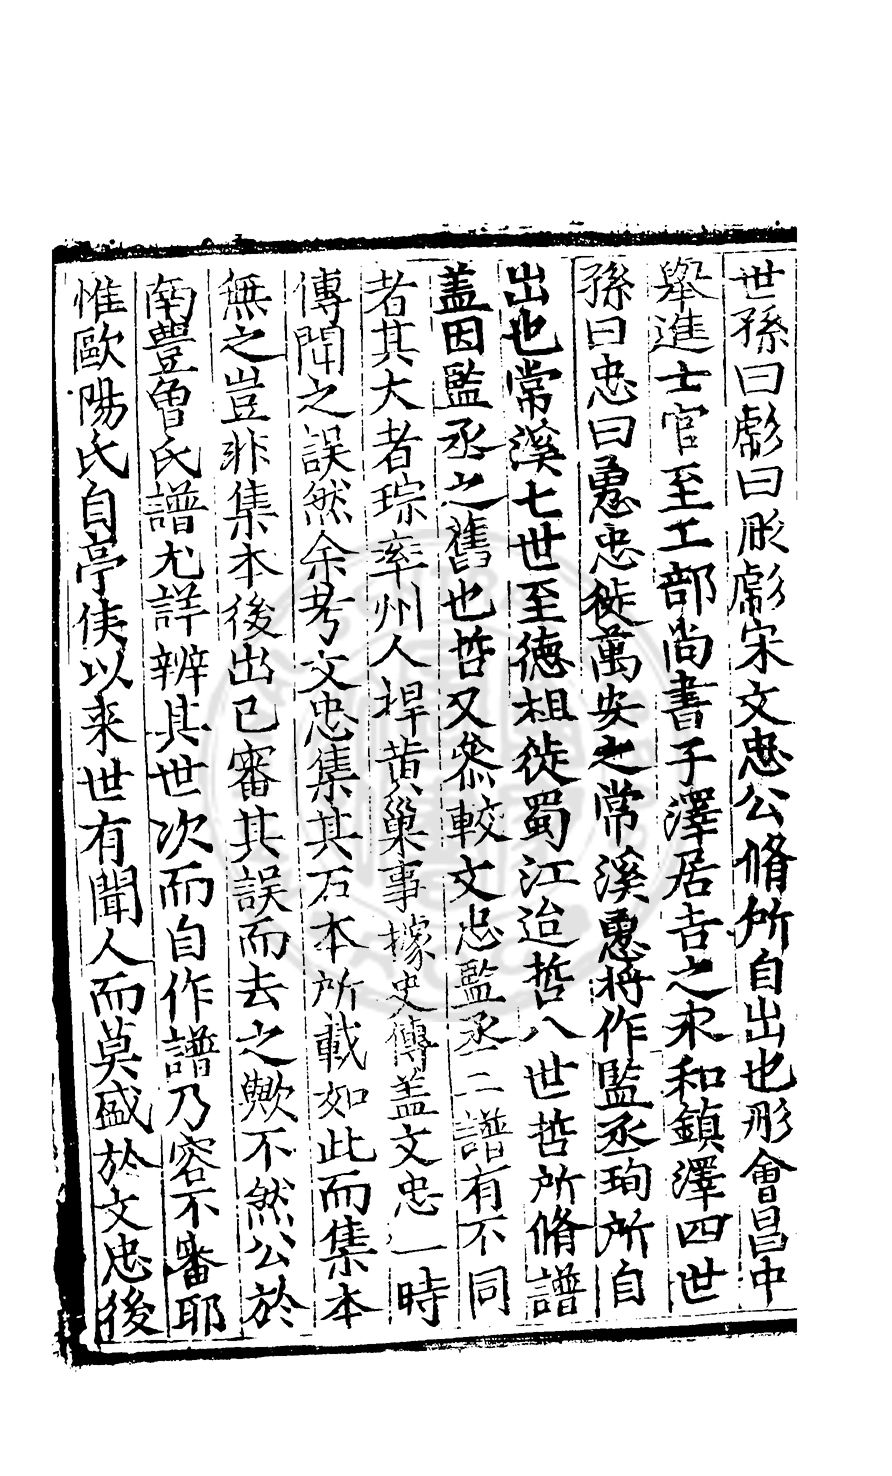 世孫曰彪曰肜彪宋文忠公脩所自出也肜會昌中
舉進士官至工部尚書子澤居吉之永和鎮澤四世
孫曰忠曰愚忠徙萬安之常溪愚將作監丞珣所自
出也常溪七世至德祖徙蜀江迨哲八世哲所脩譜
盖因監丞之舊也哲又叅較文忠監丞二譜有不同
者其大者琮率州人捍黄巢事據史傳盖文忠一時
傳聞之誤然余考文忠集其石本所載如此而集本
無之豈非集本後出已審其誤而去之歟不然公於
南豐曾氏譜尤詳辨其世次而自作譜乃容不審耶
惟歐陽氏自亭侯以来世有聞人而莫盛於文忠後